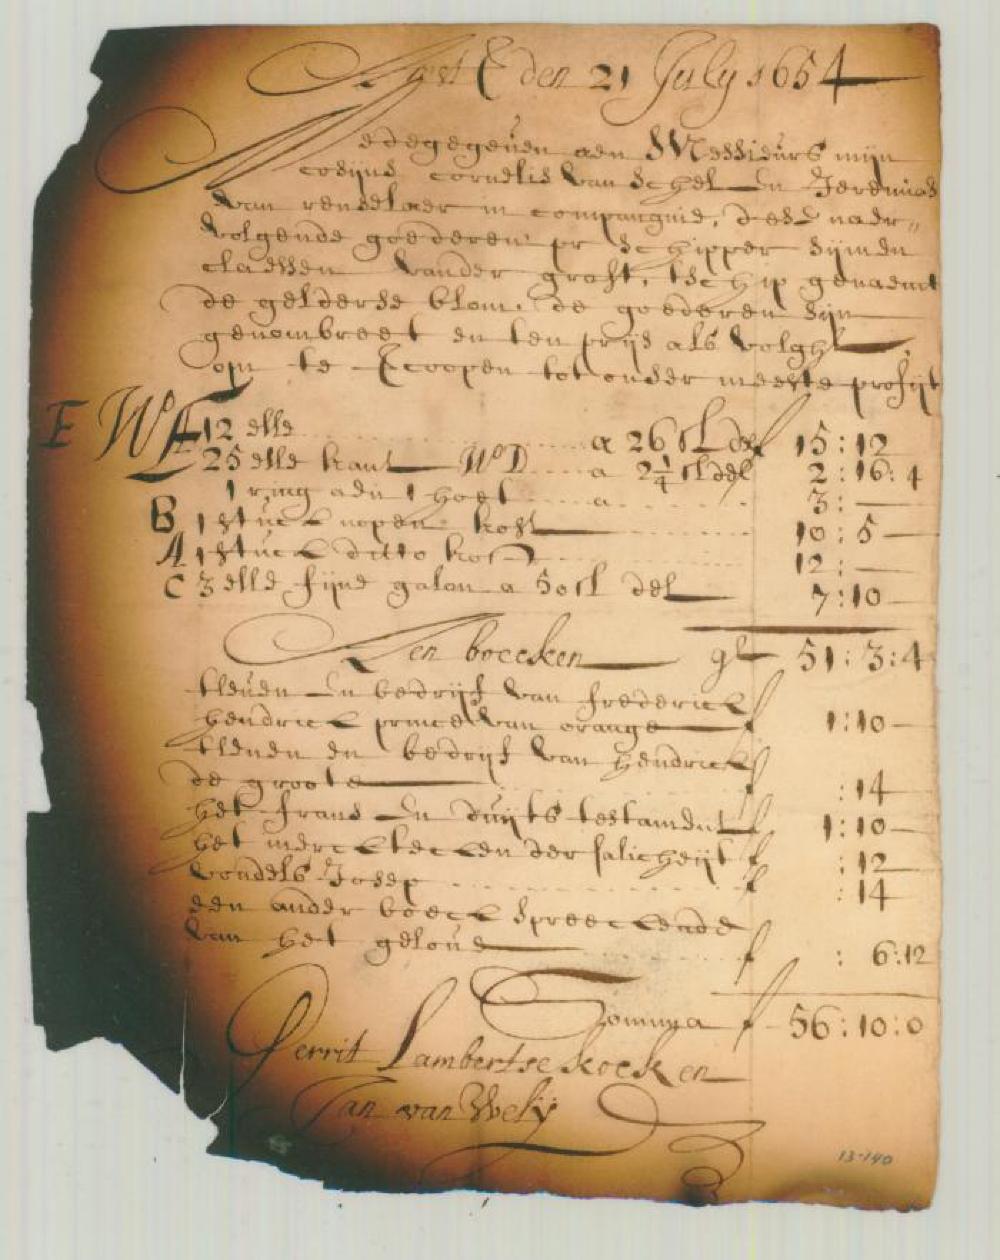 Amst den 21 July 1654
Medegegeven aen Messieurs mijn
cosijns cornelis van schel en Jeremias
van renselaer in compangnie, dese naer„
volgende goederen pr schipper sijmen
claessen vander graft, tschip genaemt
de gelderse blom. de goederen sijn
genombreet en ten prijs als volgh
om te vercoopen tot onder meeste profijt
E WE 12 elle a 26 st del f 15:12
25 elle kant WD a 2¼ st del 2:16:4
1 ring aen 1 hoet a 3:—
B 1 stuck nopen kost 10:5—
A 1 stuck ditto kost 12:—
C 3 elle fijne galon a 50 st del 7:10
Aen boecken gl 51:3:4
tleven en bedrijf van frederick
hendrick prince van orange f 1:10—
tleven en bedrijf van hendrick
de groote f :14
het frans en duijts testament f 1:10—
het merckteecken der salicheijt f :12
vondels Josep f :14
een ander boeck spreeckende
van het gelove f : 6:12
Somma f 56:10:0
Gerrit Lambertse kock en
Jan van Wely
13-140